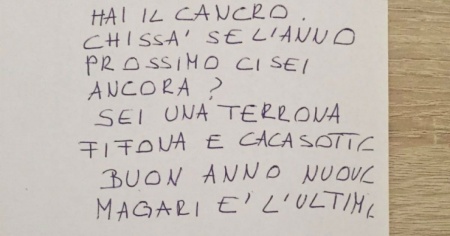 HAI IL CANCRO.
CHISSA' SE L'ANNO
PROSSIMO CI SEI
ANCORA?
SEI UNA TERRONA
FIFONA E CACASOTTO
BUON ANNO NUOVO
MAGARI E' L'ULTIMO